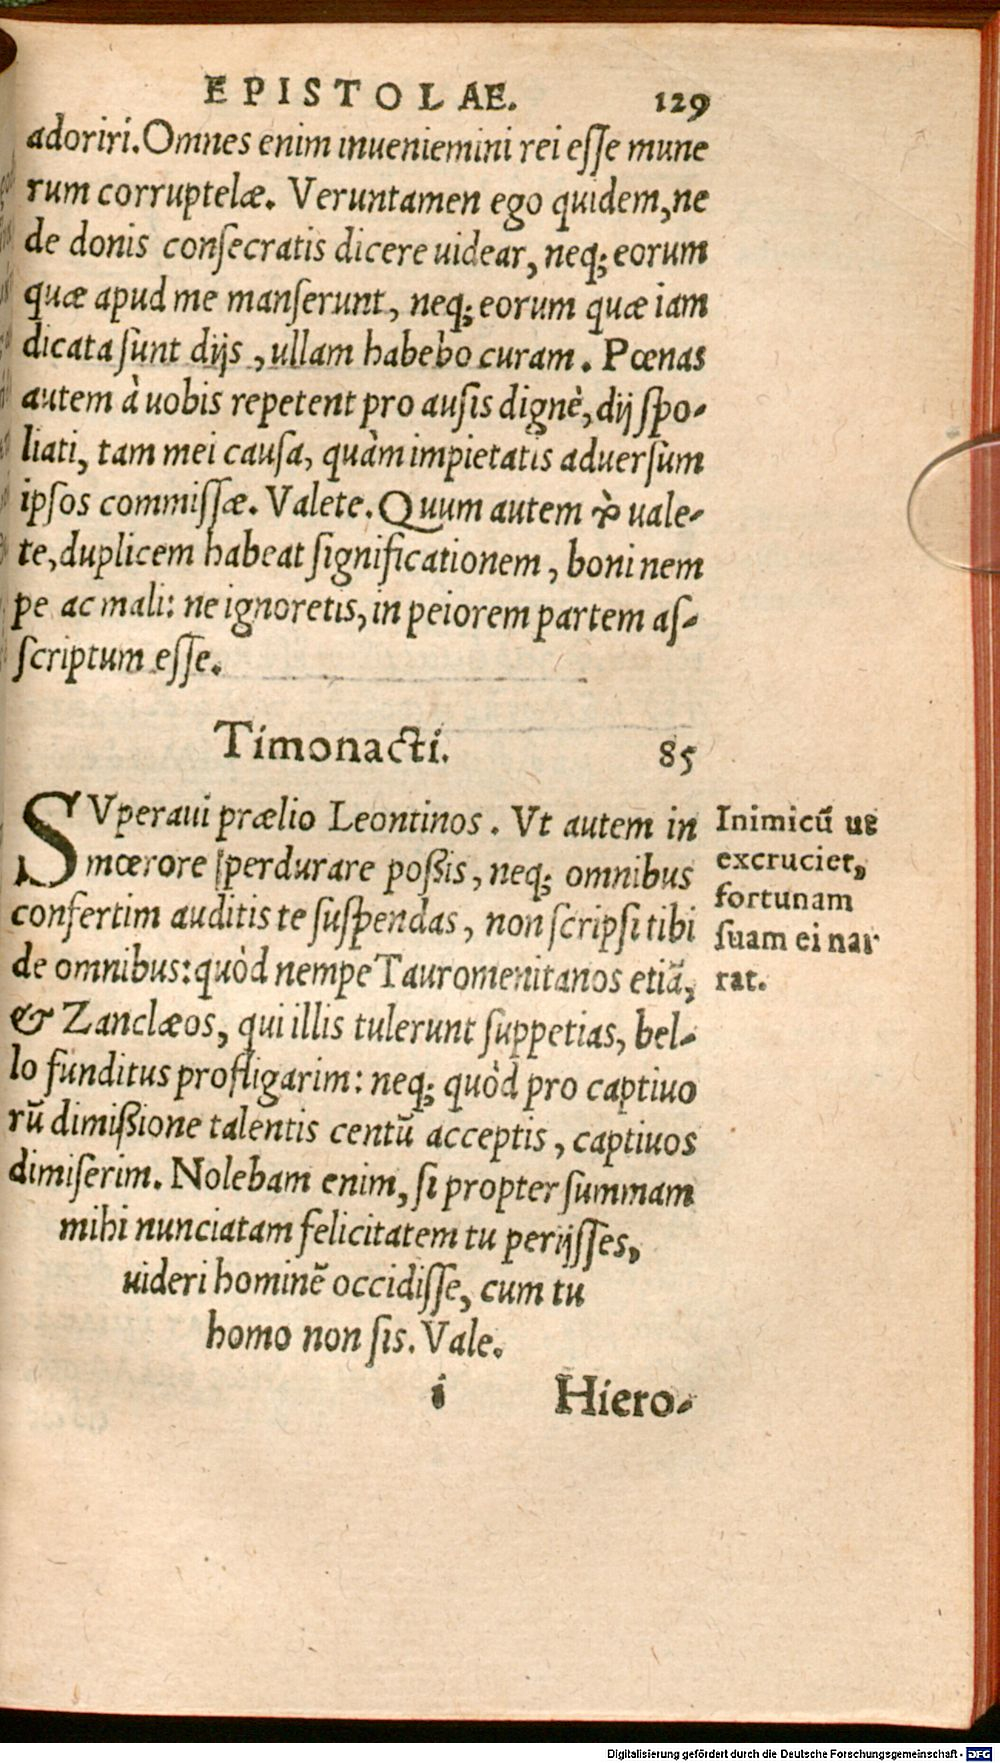 EPISTOLAE. 129
adoriri. Omnes enim inueniemini rei eſſe mune
rum corruptelæ. Veruntamen ego quidem, ne
de donis conſecratis dicere uidear, neq; eorum
quæ apud me manſerunt, neq; eorum quæ iam
dicata ſunt dijs, ullam habebo curam. Pœnas
autem à uobis repetent pro auſis dignè, dij ſpo-
liati, tam mei cauſa, quàm impietatis aduerſum
ipſos commiſſæ. Valete. Quum autem uale-
te, duplicem habeat ſignificationem, boni nem
pe ac mali: ne ignoretis, in peiorem partem aſ-
ſcriptum eſſe.
Timonacti. 85
SVperaui prælio Leontinos. Vt autem in
mœrore perdurare poßis, neq; omnibus
confertim auditis te ſuſpendas, non ſcripſi tibi
de omnibus: quòd nempe Tauromenitanos etiã,
& Zanclæos, qui illis tulerunt ſuppetias, bel-
lo funditus profligarim: neq; quòd pro captiuo
rũ dimißione talentis centũ acceptis, captiuos
dimiſerim. Nolebam enim, ſi propter ſummam
mihi nunciatam felicitatem tu perijſſes,
uideri hominẽ occidiſſe, cum tu
homo non ſis. Vale.
Inimicũ ut
excruciet,
fortunam
ſuam ei nar
rat.
i Hiero-
Digitalisierung gefördert durch die Deutsche Forschungsgemeinschaft - DFG